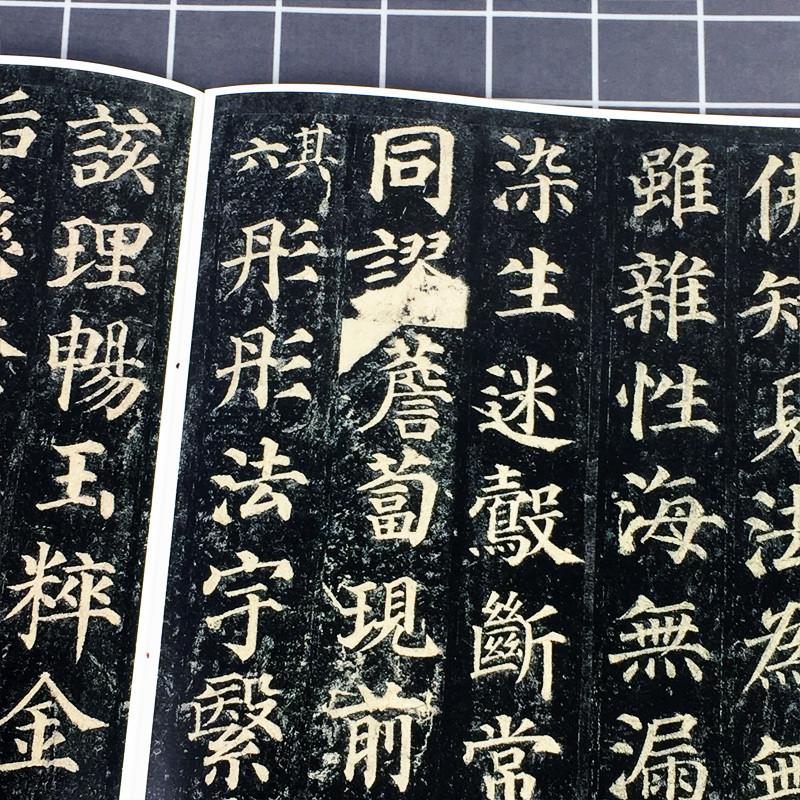 佛知見法為無
雖雜性海無漏
染生迷鷇斷常
同謬薝蔔現前
其六彤彤法宇繄
該理暢玉粹金